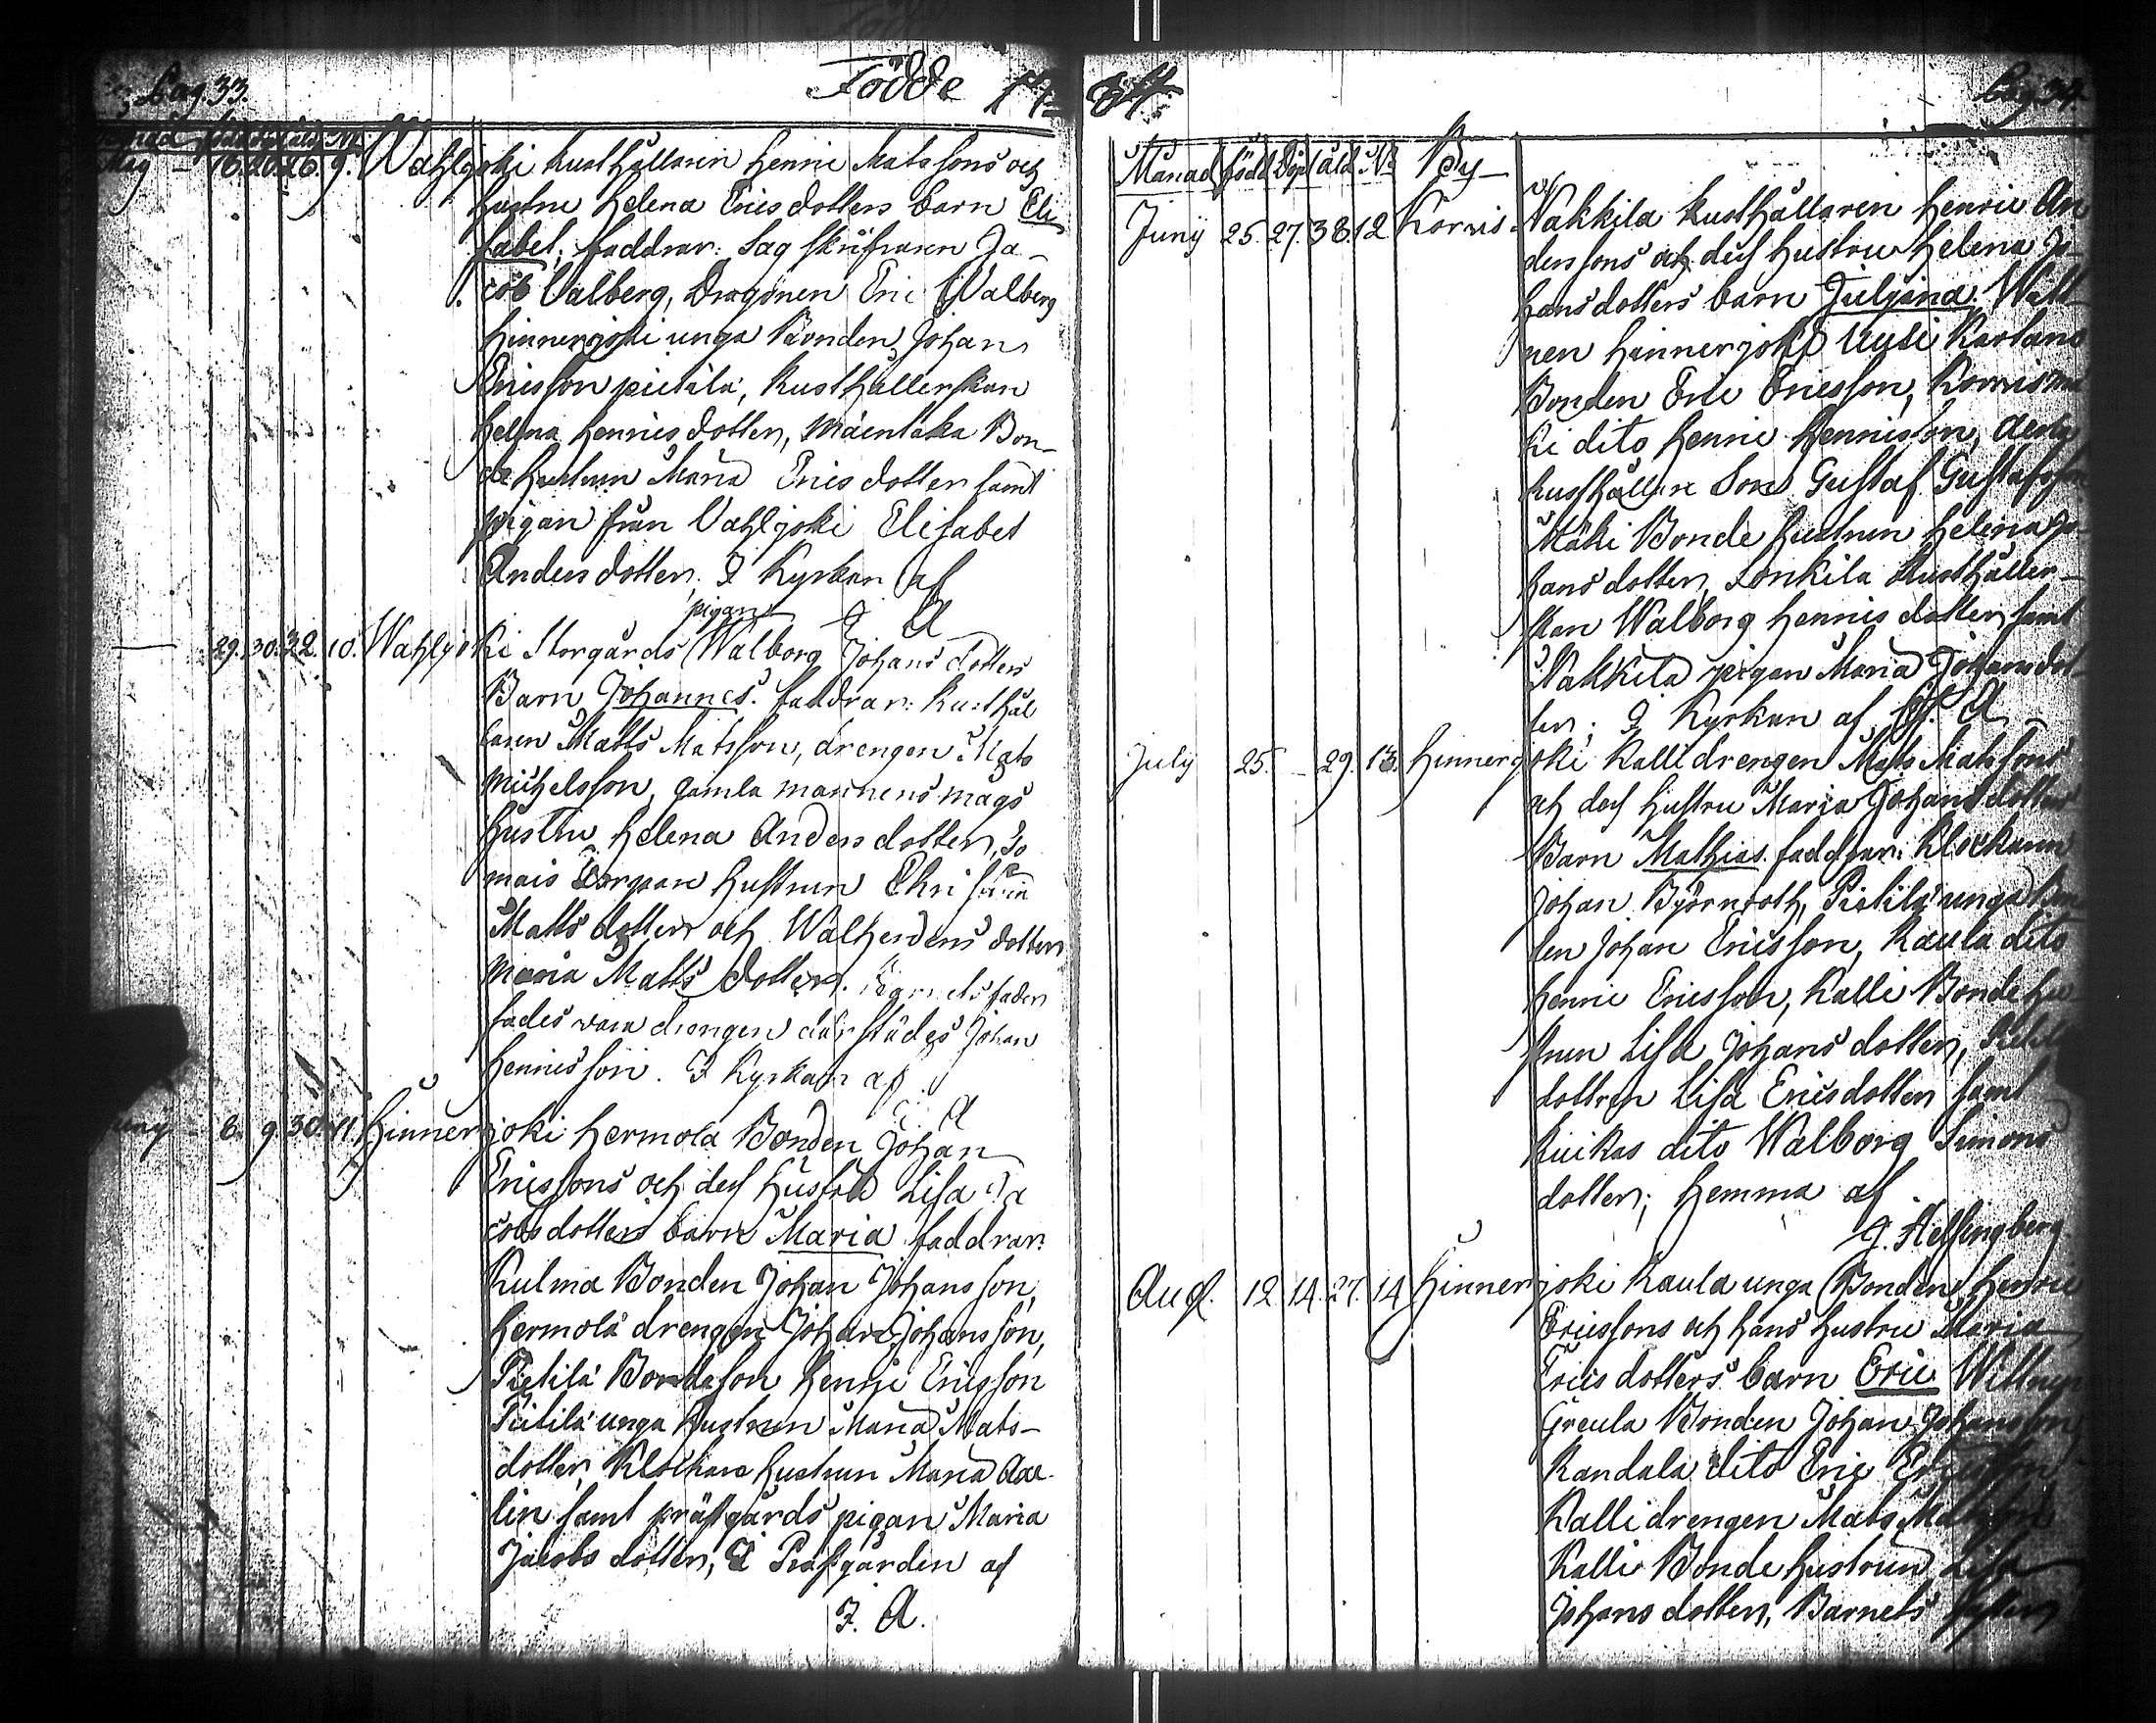 Pag. 33.
Födde 17
May - 16. 20. 26. 9. Wahljoki Rusthållaren Henric Matssons och
hustru Helena Ericsdotters barn Eli
sabet; faddrar: Lag skrifvaren Ja-
cob Valberg, Dragonen Eric Walberg
Hinnerjoki unga Bonden Johan
Ericsson pietilä, Rusthållerskan
Helena Henricsdotter, Mäentaka Bon-
de hustrun Maria Ericsdotter samt
pigan från Vahljoki Elisabet
Andersdotter. I Kyrkan af
J A
— 29. 30. 32. 10. Wahljoki Storgårds pigan Walborg Johansdotters
Barn Johannes. faddrar: Rusthål
laren Matts Matsson, drengen Mats
Michelsson, gamla mannens mågs
hustru Helena Andersdotter,
Torpare hustrun
Matts dotter och dotter
Maria Matts dotter. Barnets fader
sades vara drengen därstädes Johan
Henricsson. I Kyrkan af
J. A
Juny - 8. 9. 30. 11. Hinnerjoki Hermola Bonden Johan
Ericssons och dess hustru Lisa Ja
cobsdotters barn Maria faddrar:
Kulma Bonden Johan Johansson,
Hermola drengen Johan Johansson,
Pietilä Bondeson Henric Ericsson
Pietilä unga hustrun Maria Mats-
dotter, Klockare hustrun Maria
lin samt prästgårds pigan Maria
Jacobsdotter, I Prästgården af
J. A.
84.
Pag. 34.
Månad född Döpt åld No By
Juny 25. 27. 38. 12 Korvis Nakkila Rusthållaren Henric An
derssons och dess hustru Helena Jo
hansdotters barn Juliana. Witt-
nen Hinnerjoki Uusi Kartano
Bonden Eric Ericsson, Korvis
ki dito Henric Henricsson,
Rusthållare Son Gustaf Gustafsson
Mäki Bonde hustrun Helena Jo
hansdotter, Sonkila Rusthåller-
skan Walborg Henricsdotter samt
Nakkila pigan Maria Johansdot-
ter; I Kyrkan af J. A
July 25. - 29. 13. Hinnerjoki Kalli drengen Mats Matssons
och dess hustru Maria Johansdotters
Barn Mathias. faddrar: Klockaren
Johan Björnroth, Pietilä unga Bon
den Johan Ericsson, Kaula dito
Henric Ericsson, Kalli Bonde hu
strun Lisa Johansdotter,
dottren Lisa Ericsdotter samt
Kuikas dito Walborg Simons
dotter; hemma af
G. Helsingberg
Aug. 12. 14. 27. 14 Hinnerjoki Kaula unga Bonden Henric
Ericssons och hans hustru Maria
Ericsdotters barn Eric Wittnen
Greula Bonden Johan Johansson
Kandala dito Eric
Kalli drengen Mats Matsson
Kalli Bonde hustrun Lisa
Johansdotter, Barnets